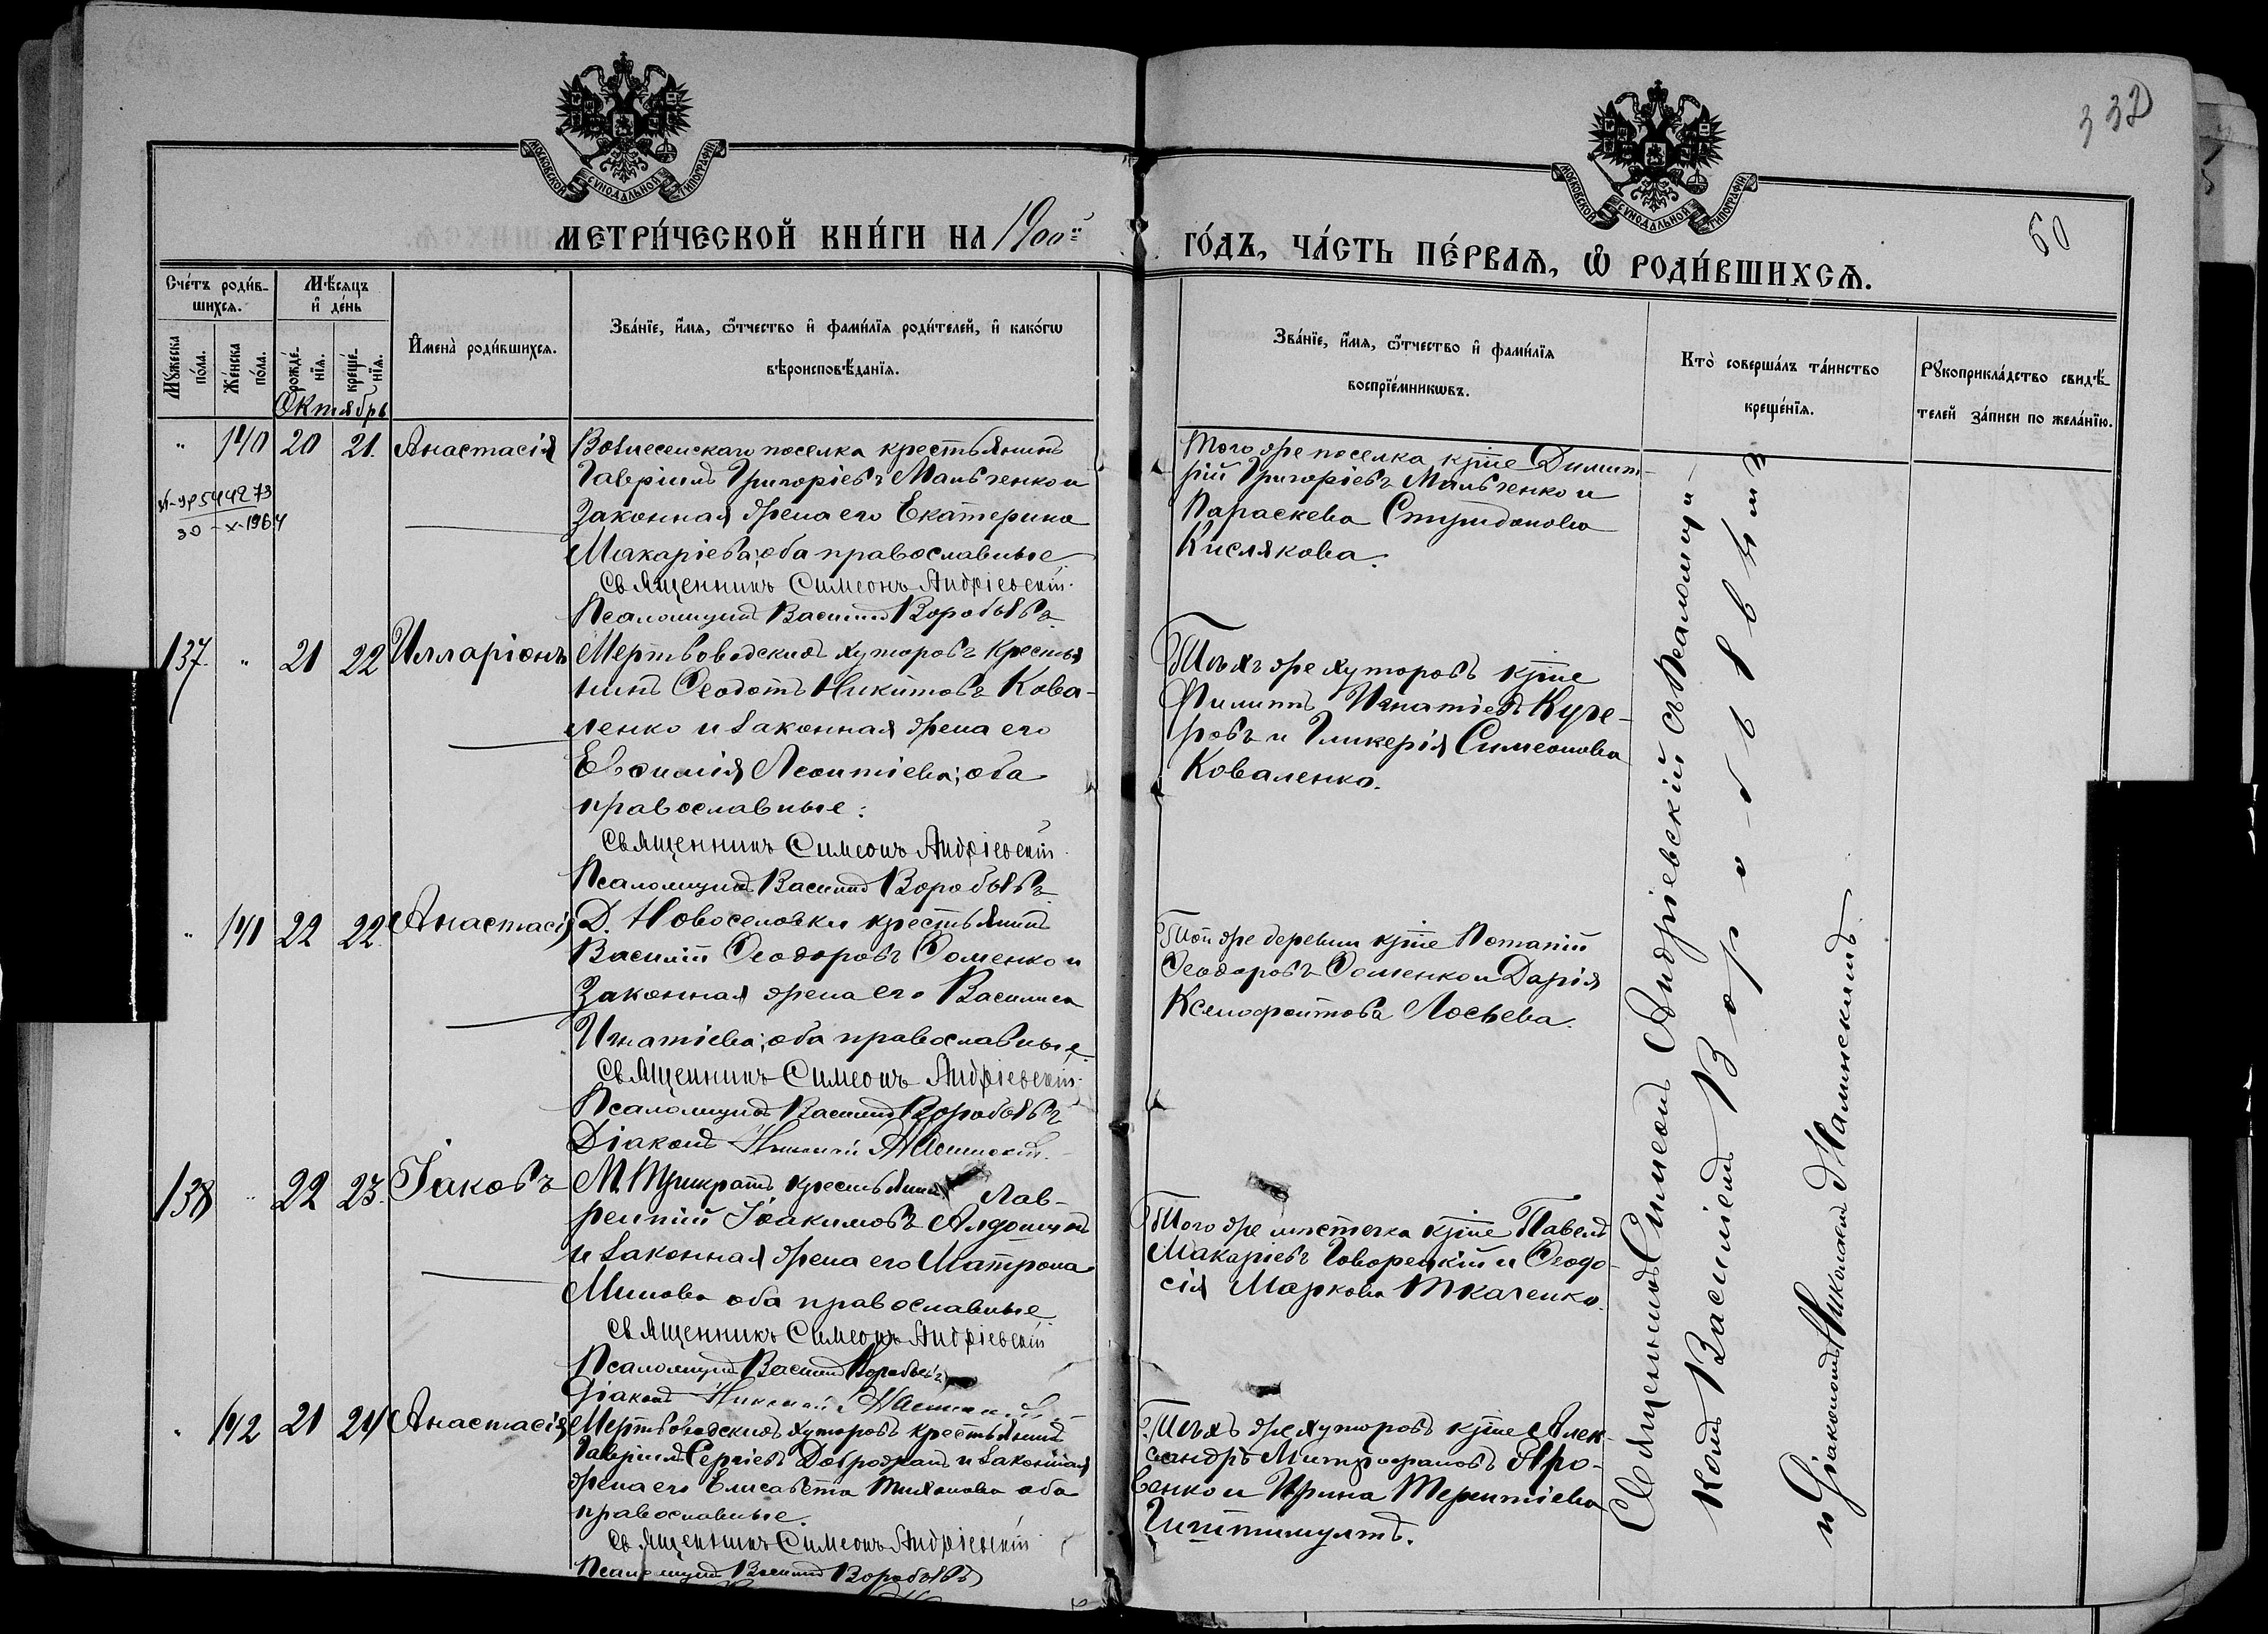 332
МОСКОВСКОЙ СѴНОДАЛЬНОЙ ТИПОГРАФІИ
МОСКОВСКОЙ СѴНОДАЛЬНОЙ ТИПОГРАФІИ
60
МЕТРИ́ЧЕСКОЙ КНИ́ГИ НА 1900й
ГО́ДЪ, ЧА́СТЬ ПЕ́РВАѦ, Ѽ РОДИ́ВШИХСѦ.
Сче́тъ роди́в-
шихсѧ.
Мꙋ́жеска
по́ла.
Же́нска
по́ла.
Мѣ́сяцъ
и҆ де́нь
рожде́-
нїѧ.
креще́-
нїѧ.
Октябрь
И҆мена̀ роди́вшихсѧ.
Зва́нїе, и҆́мѧ, ѻ҆́тчество и҆ фами́лїѧ роди́телей, и҆ како́гѡ
вѣроисповѣ́данїѧ.
Зва́нїе, и҆́мѧ, ѻ҆́тчество и҆ фами́лїѧ
воспрїе́мникѡвъ.
Кто̀ соверша́лъ та́инство
креще́нїѧ.
Рꙋкоприкла́дство свидѣ́-
телей за́писи по жела́нїю.
" 140 20 21. Анастасія
30-X-1964
Вознесенскаго поселка крестьянинъ
Гавріилъ Григоріевъ Мальченко и
законная жена его Екатерина
Макаріева; оба православные
Священникъ Симеонъ Андріевскій.
Псаломщикъ Василій Воробьевъ
Того же поселка кр̄не Димит-
рій Григоріевъ Мальченко и
Параскева Спиридонова
Кислякова.
137. " 21 22 Илларіонъ
Мертвоводскихъ хуторовъ крестья
нинъ Ѳеодотъ Никитовъ Кова-
ленко и законная жена его
Евфимія Леонтіева; оба
православные:
Священникъ Симеонъ Андріевскій.
Псаломщикъ Василій Воробьевъ
Тѣхъ же хуторовъ кр̄не
Филиппъ Игнатіевъ Куче-
ровъ и Гликерія Симеонова
Коваленко.
" 141 22 22. Анастасія
Д. Новоселовки крестьянинъ
Василій Ѳеодоровъ Ѳоменко и
законная жена его Василиса
Игнатіева; оба православные
Священникъ Симеонъ Андріевскій.
Псаломщикъ Василій Воробьевъ
Діаконъ Николай
Той же деревни кр̄не Потапій
Ѳеодоровъ Ѳоменко и Дарія
Ксенофонтова Лосьева.
138 " 22 23. Іаковъ
М. Трикратъ крестьянинъ Лав-
рентій Іоакимовъ
и законная жена его Матрона
Минова оба православные
Священникъ Симеонъ Андріевскій
Псаломщикъ Василій Воробьевъ
Діаконъ Николай
Того же мѣстечка кр̄не Павелъ
Макаріевъ Говорецкій и Ѳеодо-
сія Маркова Ткаченко.
" 142 21 24 Анастасія
Мертвоводскихъ хуторовъ крестьянинъ
Гавріилъ Сергіевъ и законная
жена его Елисавета оба
православные.
Священникъ Симеонъ Андріевскій
Псаломщикъ Василій Воробьевъ
Тѣхъ же хуторовъ кр̄не Алек-
сандръ Митрофановъ Яро-
венко и Ирина Терентіева
Священникъ Симеонъ Андріевскій съ Псаломщи-
комъ Василіемъ Воробьевымъ
и Діакономъ Николаемъ